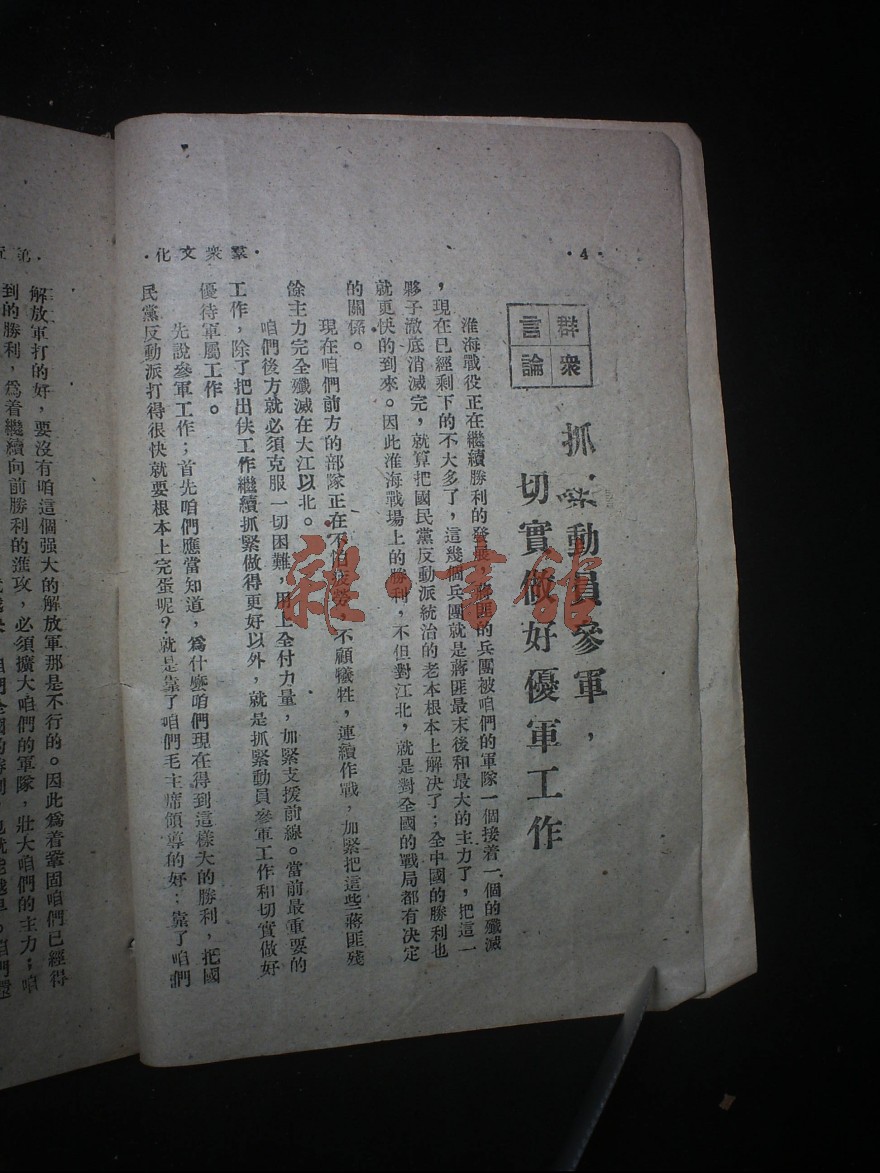 ·4·
·羣衆文化·
群衆
言論
抓緊動員參軍，
切實做好優軍工作
淮海戰役正在繼續勝利的發展，蔣匪的兵團被咱們的軍隊一個接着一個的殲滅
，現在已經剩下的不大多了，這幾個兵團就是蔣匪最末後和最大的主力了，把這一
夥子澈底消滅完，就算把國民黨反動派統治的老本根本上解决了；全中國的勝利也
就更快的到來。因此淮海戰場上的勝利，不但對江北，就是對全國的戰局都有决定
的關係。
現在咱們前方的部隊正在不怕疲勞，不顧犧牲，連續作戰，加緊把這些蔣匪殘
餘主力完全殲滅在大江以北。
咱們後方就必須克服一切困難，用上全付力量，加緊支援前線。當前最重要的
工作，除了把出伕工作繼續抓緊做得更好以外，就是抓緊動員參軍工作和切實做好
優待軍屬工作。
先說參軍工作；首先咱們應當知道，爲什麼咱們現在得到這樣大的勝利，把國
民黨反動派打得很快就要根本上完蛋呢？就是靠了咱們毛主席領導的好：靠了咱們
·第
解放軍打的好，要沒有咱這個强大的解放軍那是不行的。因此爲着鞏固咱們已經得
到的勝利，爲着繼續向前勝利的進攻，必須擴大咱們的軍隊，壯大咱們的主力；咱
雜·書館